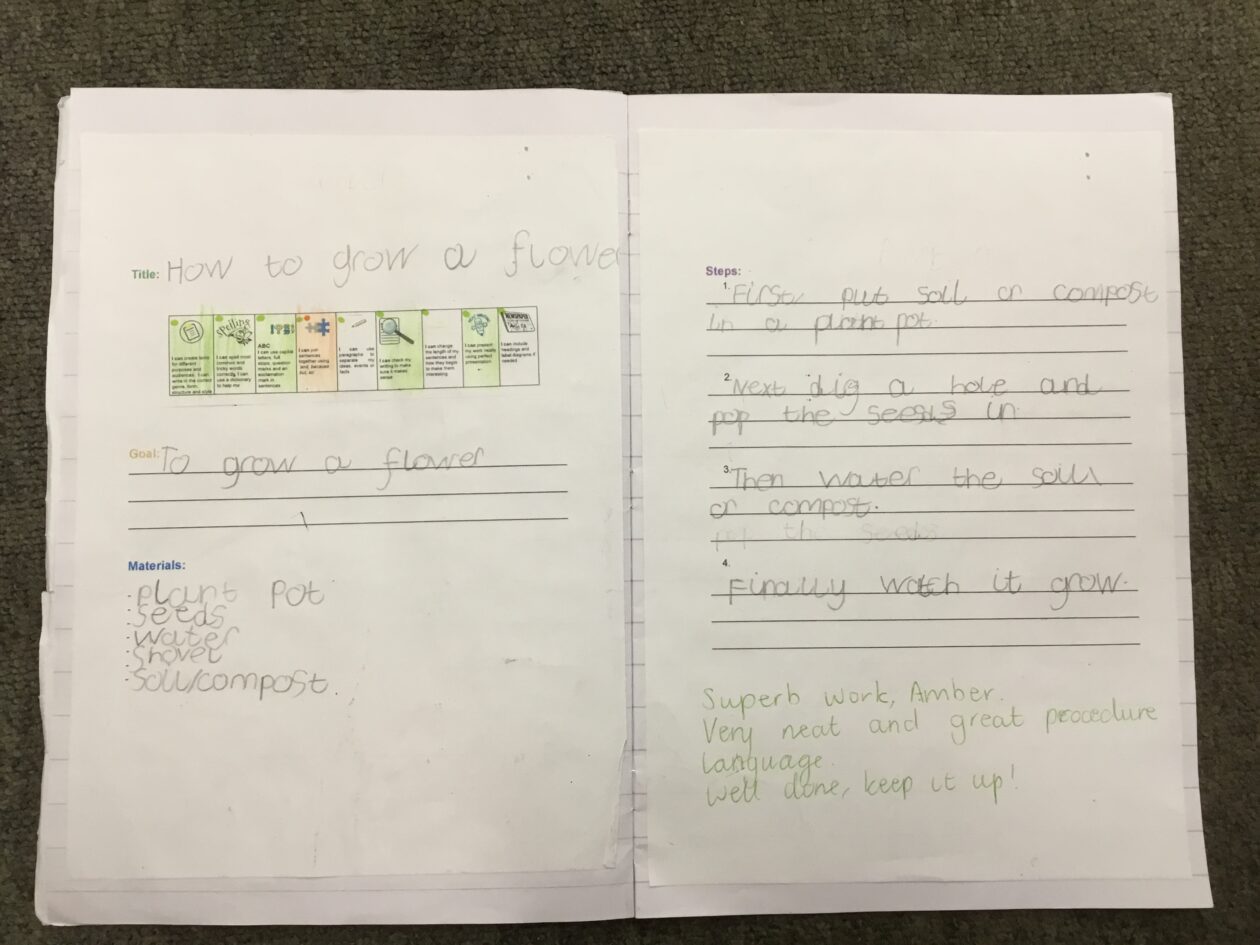 Title: How to grow a flower
I can create texts for different purposes and audiences. I can write in the correct genre, form, structure and style
spelling
I can spell most common and tricky words correctly. I can use a dictionary to help me
ABC
I can use capital letters, full stops, question marks and an exclamation mark in sentences
I can join sentences together using and, because but, so
I can use paragraphs to separate my ideas, events or facts
I can check my writing to make sure it makes sense
I can change the length of my sentences and how they begin to make them interesting
I can present my work neatly using perfect presentation
NEWSPAPER
I can include headings and label diagrams if needed
Goal: To grow a flower
Materials:
· plant pot
· seeds
· water
· shovel
· soil/compost.
Steps:
1. First, put soil or compost
in a plant pot.
2. Next dig a hole and
pop the seeds in.
3. Then water the soil
or compost.
pop the seeds
4.
Finally watch it grow.
Superb work, Amber.
Very neat and great procedure
language.
Well done, keep it up!